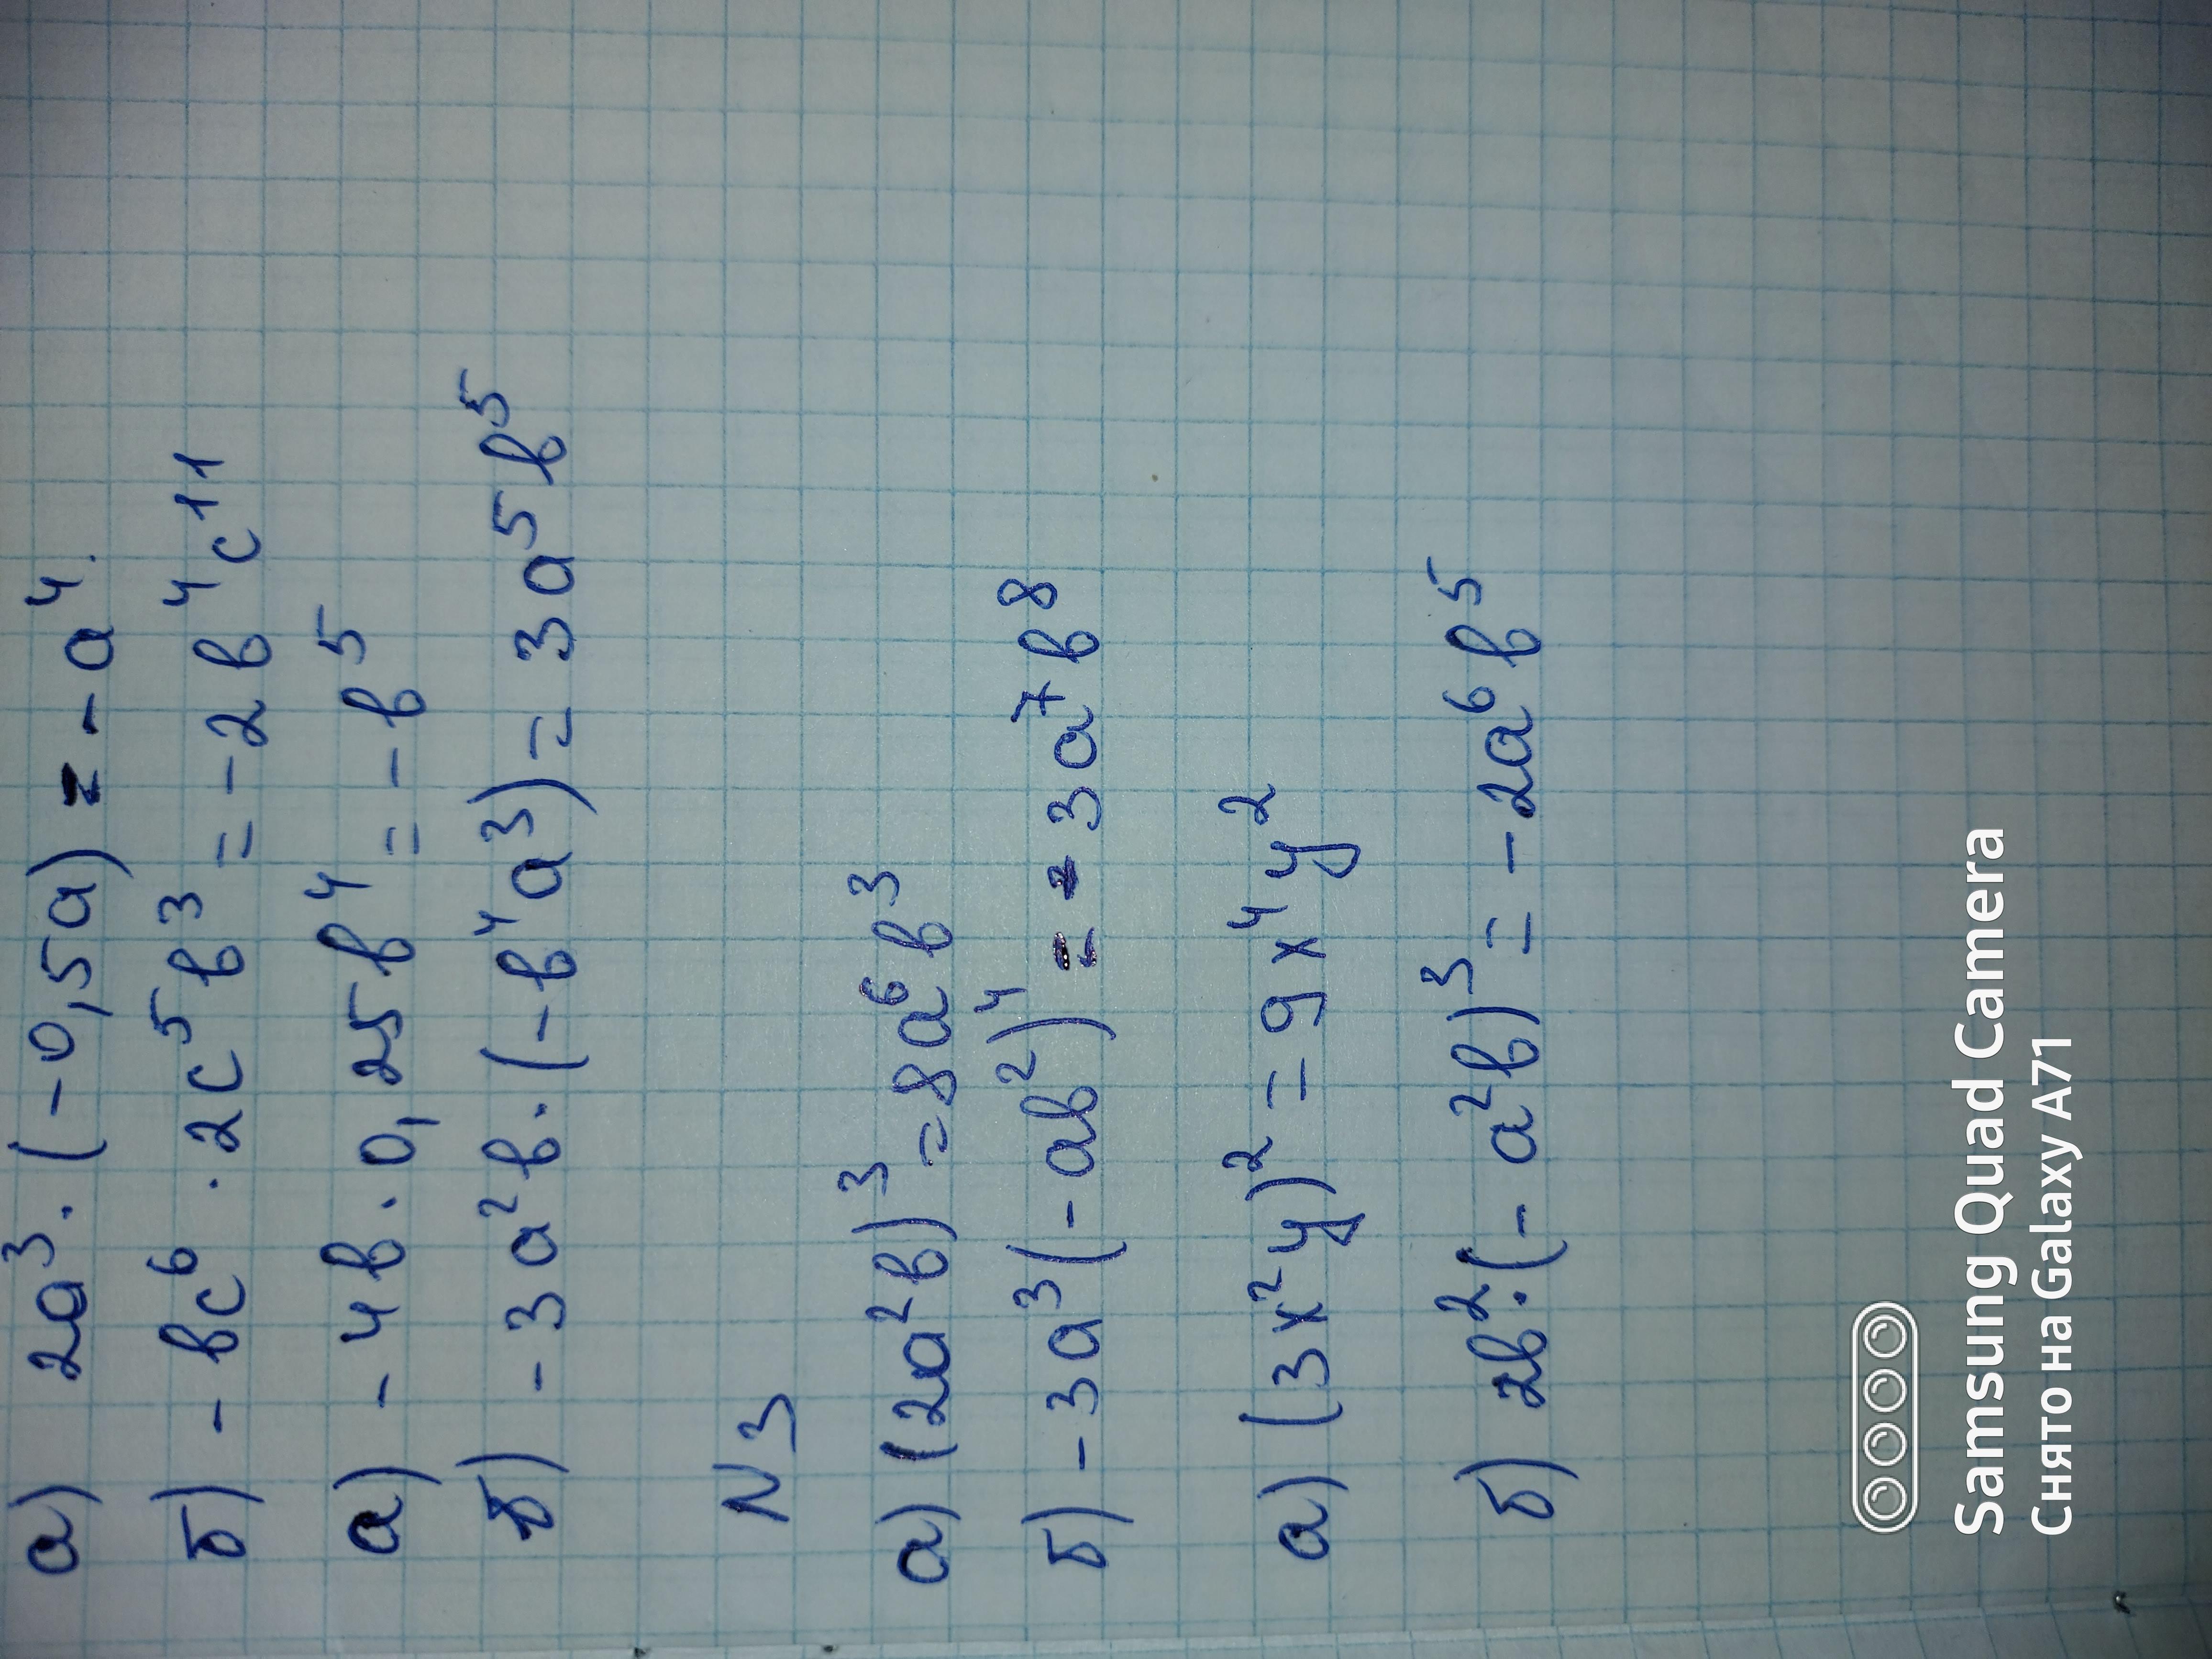 а) 2a³ · (-0,5a) = -a⁴.
б) -bc⁶ · 2c⁵b³ = -2b⁴c¹¹
а) -4b · 0,25b⁴ = -b⁵
б) -3a²b · (-b⁴a³) = 3a⁵b⁵
N3
а) (2a²b)³ = 8a⁶b³
б) -3a³(-ab²)⁴ = -3a⁷b⁸
а) (3x²y)² = 9x⁴y²
б) 2b² · (-a²b)³ = -2a⁶b⁵
Samsung Quad Camera
Снято на Galaxy A71